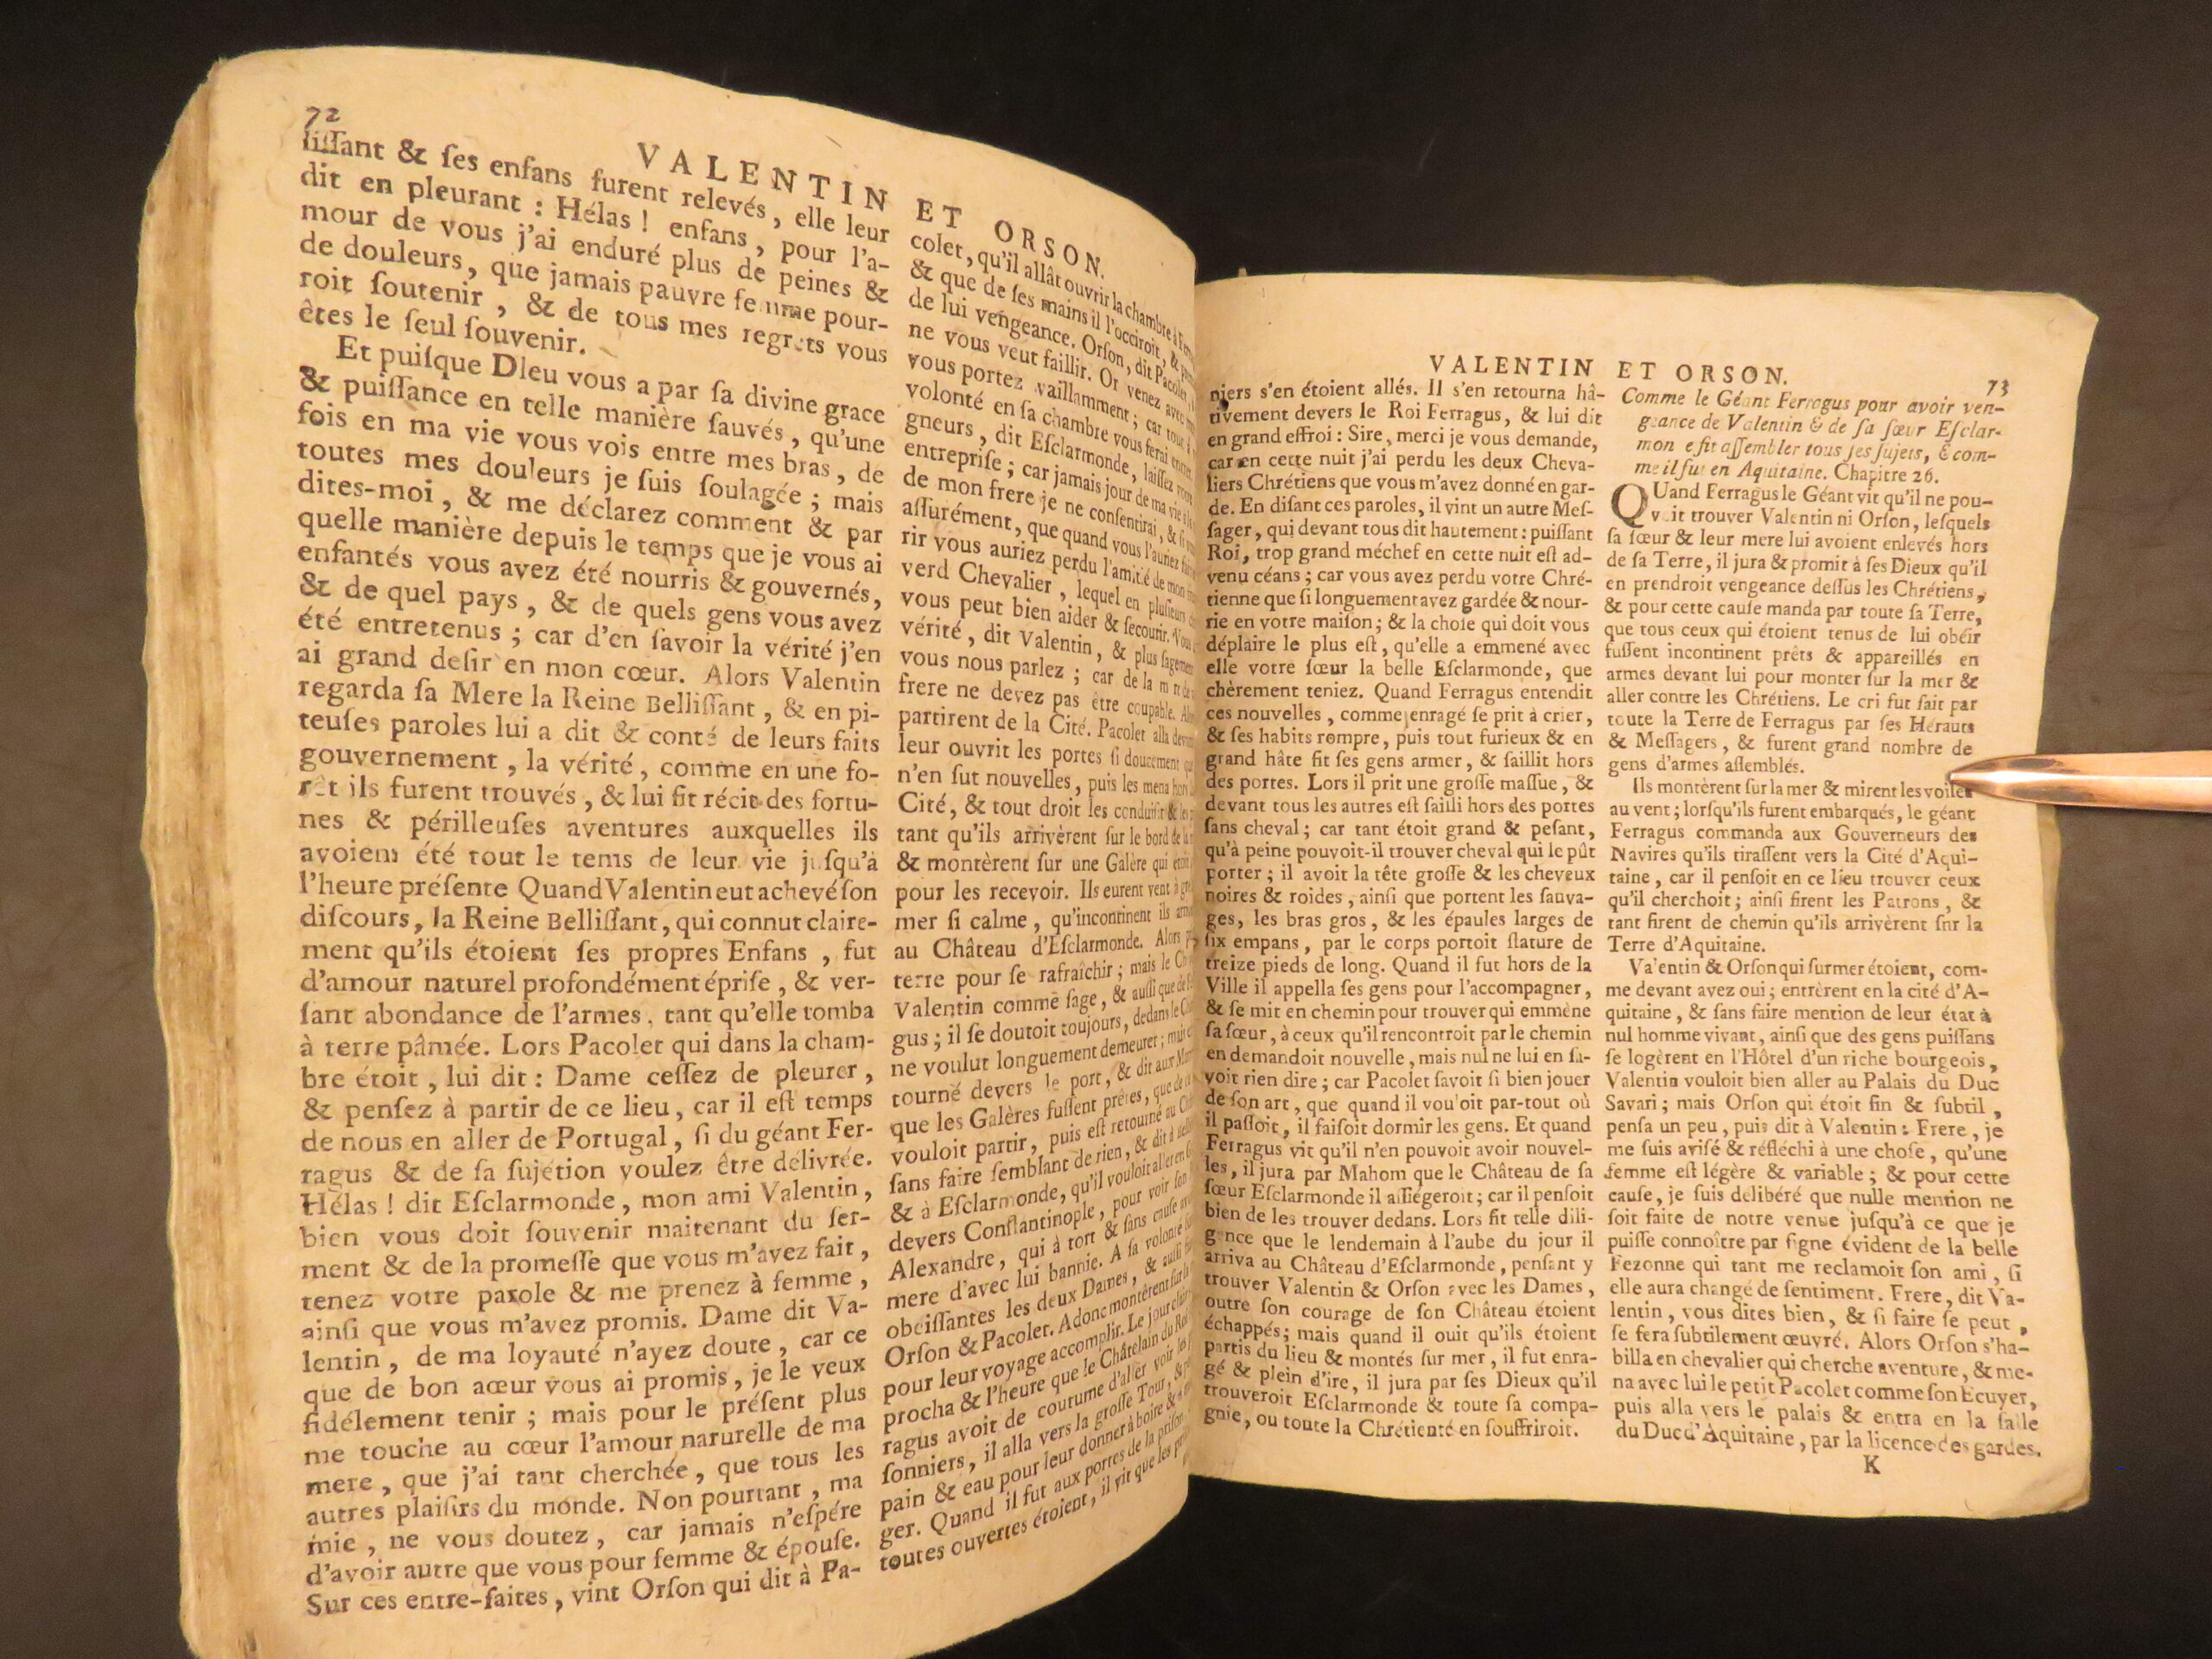 72
VALENTIN ET ORSON.
liſſant & ſes enfans furent relevés, elle leur
dit en pleurant : Hélas ! enfans, pour l'a-
mour de vous j'ai enduré plus de peines &
de douleurs, que jamais pauvre femme pour-
roit ſoutenir, & de tous mes regrets vous
êtes le ſeul ſouvenir.
Et puiſque Dieu vous a par ſa divine grace
& puiſſance en telle manière ſauvés, qu'une
fois en ma vie vous vois entre mes bras, de
toutes mes douleurs je ſuis ſoulagée ; mais
dites-moi, & me déclarez comment & par
quelle manière depuis le temps que je vous ai
enfantés vous avez été nourris & gouvernés,
& de quel pays, & de quels gens vous avez
été entretenus ; car d'en ſavoir la vérité j'en
ai grand deſir en mon cœur. Alors Valentin
regarda ſa Mere la Reine Belliſſant, & en pi-
teuſes paroles lui a dit & conté de leurs faits
gouvernement, la vérité, comme en une fo-
rêt ils furent trouvés, & lui fit récit des fortu-
nes & périlleuſes aventures auxquelles ils
avoient été tout le tems de leur vie juſqu'à
l'heure préſente Quand Valentin eut achevé ſon
diſcours, la Reine Belliſſant, qui connut claire-
ment qu'ils étoient ſes propres Enfans, fut
d'amour naturel profondément épriſe, & ver-
ſant abondance de l'armes, tant qu'elle tomba
à terre pâmée. Lors Pacolet qui dans la cham-
bre étoit, lui dit : Dame ceſſez de pleurer,
& penſez à partir de ce lieu, car il eſt temps
de nous en aller de Portugal, ſi du géant Fer-
ragus & de ſa ſujétion voulez être délivrée.
Hélas ! dit Eſclarmonde, mon ami Valentin,
bien vous doit ſouvenir maitenant du ſer-
ment & de la promeſſe que vous m'avez fait,
tenez votre parole & me prenez à femme,
ainſi que vous m'avez promis. Dame dit Va-
lentin, de ma loyauté n'ayez doute, car ce
que de bon aœur vous ai promis, je le veux
fidélement tenir ; mais pour le préſent plus
me touche au cœur l'amour narurelle de ma
mere, que j'ai tant cherchée, que tous les
autres plaiſirs du monde. Non pourtant, ma
mie, ne vous doutez, car jamais n'eſpére
d'avoir autre que vous pour femme & épouſe.
Sur ces entre-faites, vint Orſon qui dit à Pa-
colet, qu'il allât ouvrir la chambre à
& que de ſes mains il l'occiroit, &
de lui vengeance. Orſon, dit Pacolet,
ne vous veut faillir. Or venez avec
vous portez vaillamment ; car tout à
volonté en ſa chambre vous ferai entrer.
gneurs, dit Eſclarmonde, laiſſez
entrepriſe ; car jamais jour de ma vie à
de mon frere je ne conſentirai, & ſi
aſſurément, que quand vous l'auriez fait
rir vous auriez perdu l'amitié de mon
verd Chevalier, lequel en pluſieurs
vous peut bien aider & ſecourir. Vous
vérité, dit Valentin, & plus ſagement
vous nous parlez ; car de la mort de
frere ne devez pas être coupable.
partirent de la Cité. Pacolet alla devant
leur ouvrit les portes ſi doucement
n'en fut nouvelles, puis les mena hors
Cité, & tout droit les conduiſit &
tant qu'ils arrivèrent ſur le bord de la
& montèrent ſur une Galère qui étoit
pour les recevoir. Ils eurent vent à gré
mer ſi calme, qu'incontinent ils
au Château d'Eſclarmonde. Alors
terre pour ſe rafraîchir ; mais le
Valentin comme ſage, & auſſi que de
gus ; il ſe doutoit toujours, dedans le
ne voulut longuement demeurer ; mais
tourné devers le port, & dit aux
que les Galères fuſſent prêtes, que de
vouloit partir, puis eſt retourné au
ſans faire ſemblant de rien, & dit à
& à Eſclarmonde, qu'il vouloit aller en
devers Conſtantinople, pour voir ſon
Alexandre, qui à tort & ſans cauſe
mere d'avec lui bannie. A ſa volonté
obéiſſantes les deux Dames, & auſſi
Orſon & Pacolet. Adonc montèrent ſur
pour leur voyage accomplir. Le jour
procha & l'heure que le Châtelain du Roi
ragus avoit de coutume d'aller voir les
ſonniers, il alla vers la groſſe Tour, &
pain & eau pour leur donner à boire &
ger. Quand il fut aux portes de la priſon
toutes ouvertes étoient, il vit que les
VALENTIN ET ORSON.
73
niers s'en étoient allés. Il s'en retourna hâ-
tivement devers le Roi Ferragus, & lui dit
en grand effroi : Sire, merci je vous demande,
car en cette nuit j'ai perdu les deux Cheva-
liers Chrétiens que vous m'avez donné en gar-
de. En diſant ces paroles, il vint un autre Meſ-
ſager, qui devant tous dit hautement : puiſſant
Roi, trop grand méchef en cette nuit eſt ad-
venu céans ; car vous avez perdu votre Chré-
tienne que ſi longuement avez gardée & nour-
rie en votre maiſon ; & la choſe qui doit vous
déplaire le plus eſt, qu'elle a emmené avec
elle votre ſœur la belle Eſclarmonde, que
chèrement teniez. Quand Ferragus entendit
ces nouvelles, comme enragé ſe prit à crier,
& ſes habits rompre, puis tout furieux & en
grand hâte fit ſes gens armer, & ſaillit hors
des portes. Lors il prit une groſſe maſſue, &
devant tous les autres eſt ſailli hors des portes
ſans cheval ; car tant étoit grand & peſant,
qu'à peine pouvoit-il trouver cheval qui le pût
porter ; il avoit la tête groſſe & les cheveux
noires & roides, ainſi que portent les ſauva-
ges, les bras gros, & les épaules larges de
ſix empans, par le corps portoit ſlature de
treize pieds de long. Quand il fut hors de la
Ville il appella ſes gens pour l'accompagner,
& ſe mit en chemin pour trouver qui emmène
ſa ſœur, à ceux qu'il rencontroit par le chemin
en demandoit nouvelle, mais nul ne lui en ſa-
voit rien dire ; car Pacolet ſavoit ſi bien jouer
de ſon art, que quand il vouloit par-tout où
il paſſoit, il faiſoit dormir les gens. Et quand
Ferragus vit qu'il n'en pouvoit avoir nouvel-
les, il jura par Mahom que le Château de ſa
ſœur Eſclarmonde il aſſiégeroit ; car il penſoit
bien de les trouver dedans. Lors fit telle dili-
gence que le lendemain à l'aube du jour il
arriva au Château d'Eſclarmonde, penſant y
trouver Valentin & Orſon avec les Dames,
outre ſon courage de ſon Château étoient
échappés ; mais quand il ouit qu'ils étoient
partis du lieu & montés ſur mer, il fut enra-
gé & plein d'ire, il jura par ſes Dieux qu'il
trouveroit Eſclarmonde & toute ſa compa-
gnie, ou toute la Chrétienté en ſouffriroit.
Comme le Géant Ferragus pour avoir ven-
geance de Valentin & de ſa ſœur Eſclar-
monde fit aſſembler tous ſes ſujets, & com-
me il fut en Aquitaine. Chapitre 26.
QUand Ferragus le Géant vit qu'il ne pou-
voit trouver Valentin ni Orſon, leſquels
ſa ſœur & leur mere lui avoient enlevés hors
de ſa Terre, il jura & promit à ſes Dieux qu'il
en prendroit vengeance deſſus les Chrétiens,
& pour cette cauſe manda par toute ſa Terre,
que tous ceux qui étoient tenus de lui obéir
fuſſent incontinent prêts & appareillés en
armes devant lui pour monter ſur la mer &
aller contre les Chrétiens. Le cri fut fait par
toute la Terre de Ferragus par ſes Hérauts
& Meſſagers, & furent grand nombre de
gens d'armes aſſemblés.
Ils montèrent ſur la mer & mirent les voiles
au vent ; lorſqu'ils furent embarqués, le géant
Ferragus commanda aux Gouverneurs des
Navires qu'ils tiraſſent vers la Cité d'Aqui-
taine, car il penſoit en ce lieu trouver ceux
qu'il cherchoit ; ainſi firent les Patrons, &
tant firent de chemin qu'ils arrivèrent ſur la
Terre d'Aquitaine.
Valentin & Orſon qui ſur mer étoient, com-
me devant avez oui ; entrèrent en la cité d'A-
quitaine, & ſans faire mention de leur état à
nul homme vivant, ainſi que des gens puiſſans
ſe logèrent en l'Hôtel d'un riche bourgeois,
Valentin vouloit bien aller au Palais du Duc
Savari ; mais Orſon qui étoit fin & ſubtil,
penſa un peu, puis dit à Valentin : Frere, je
me ſuis aviſé & réfléchi à une choſe, qu'une
femme eſt légère & variable ; & pour cette
cauſe, je ſuis délibéré que nulle mention ne
ſoit faite de notre venue juſqu'à ce que je
puiſſe connoître par ſigne évident de la belle
Fezonne qui tant me reclamoit ſon ami, ſi
elle aura changé de ſentiment. Frere, dit Va-
lentin, vous dites bien, & ſi faire ſe peut,
ſe fera ſubtilement œuvré. Alors Orſon s'ha-
billa en chevalier qui cherche aventure, & me-
na avec lui le petit Pacolet comme ſon Ecuyer,
puis alla vers le palais & entra en la ſalle
du Duc d'Aquitaine, par la licence des gardes.
K